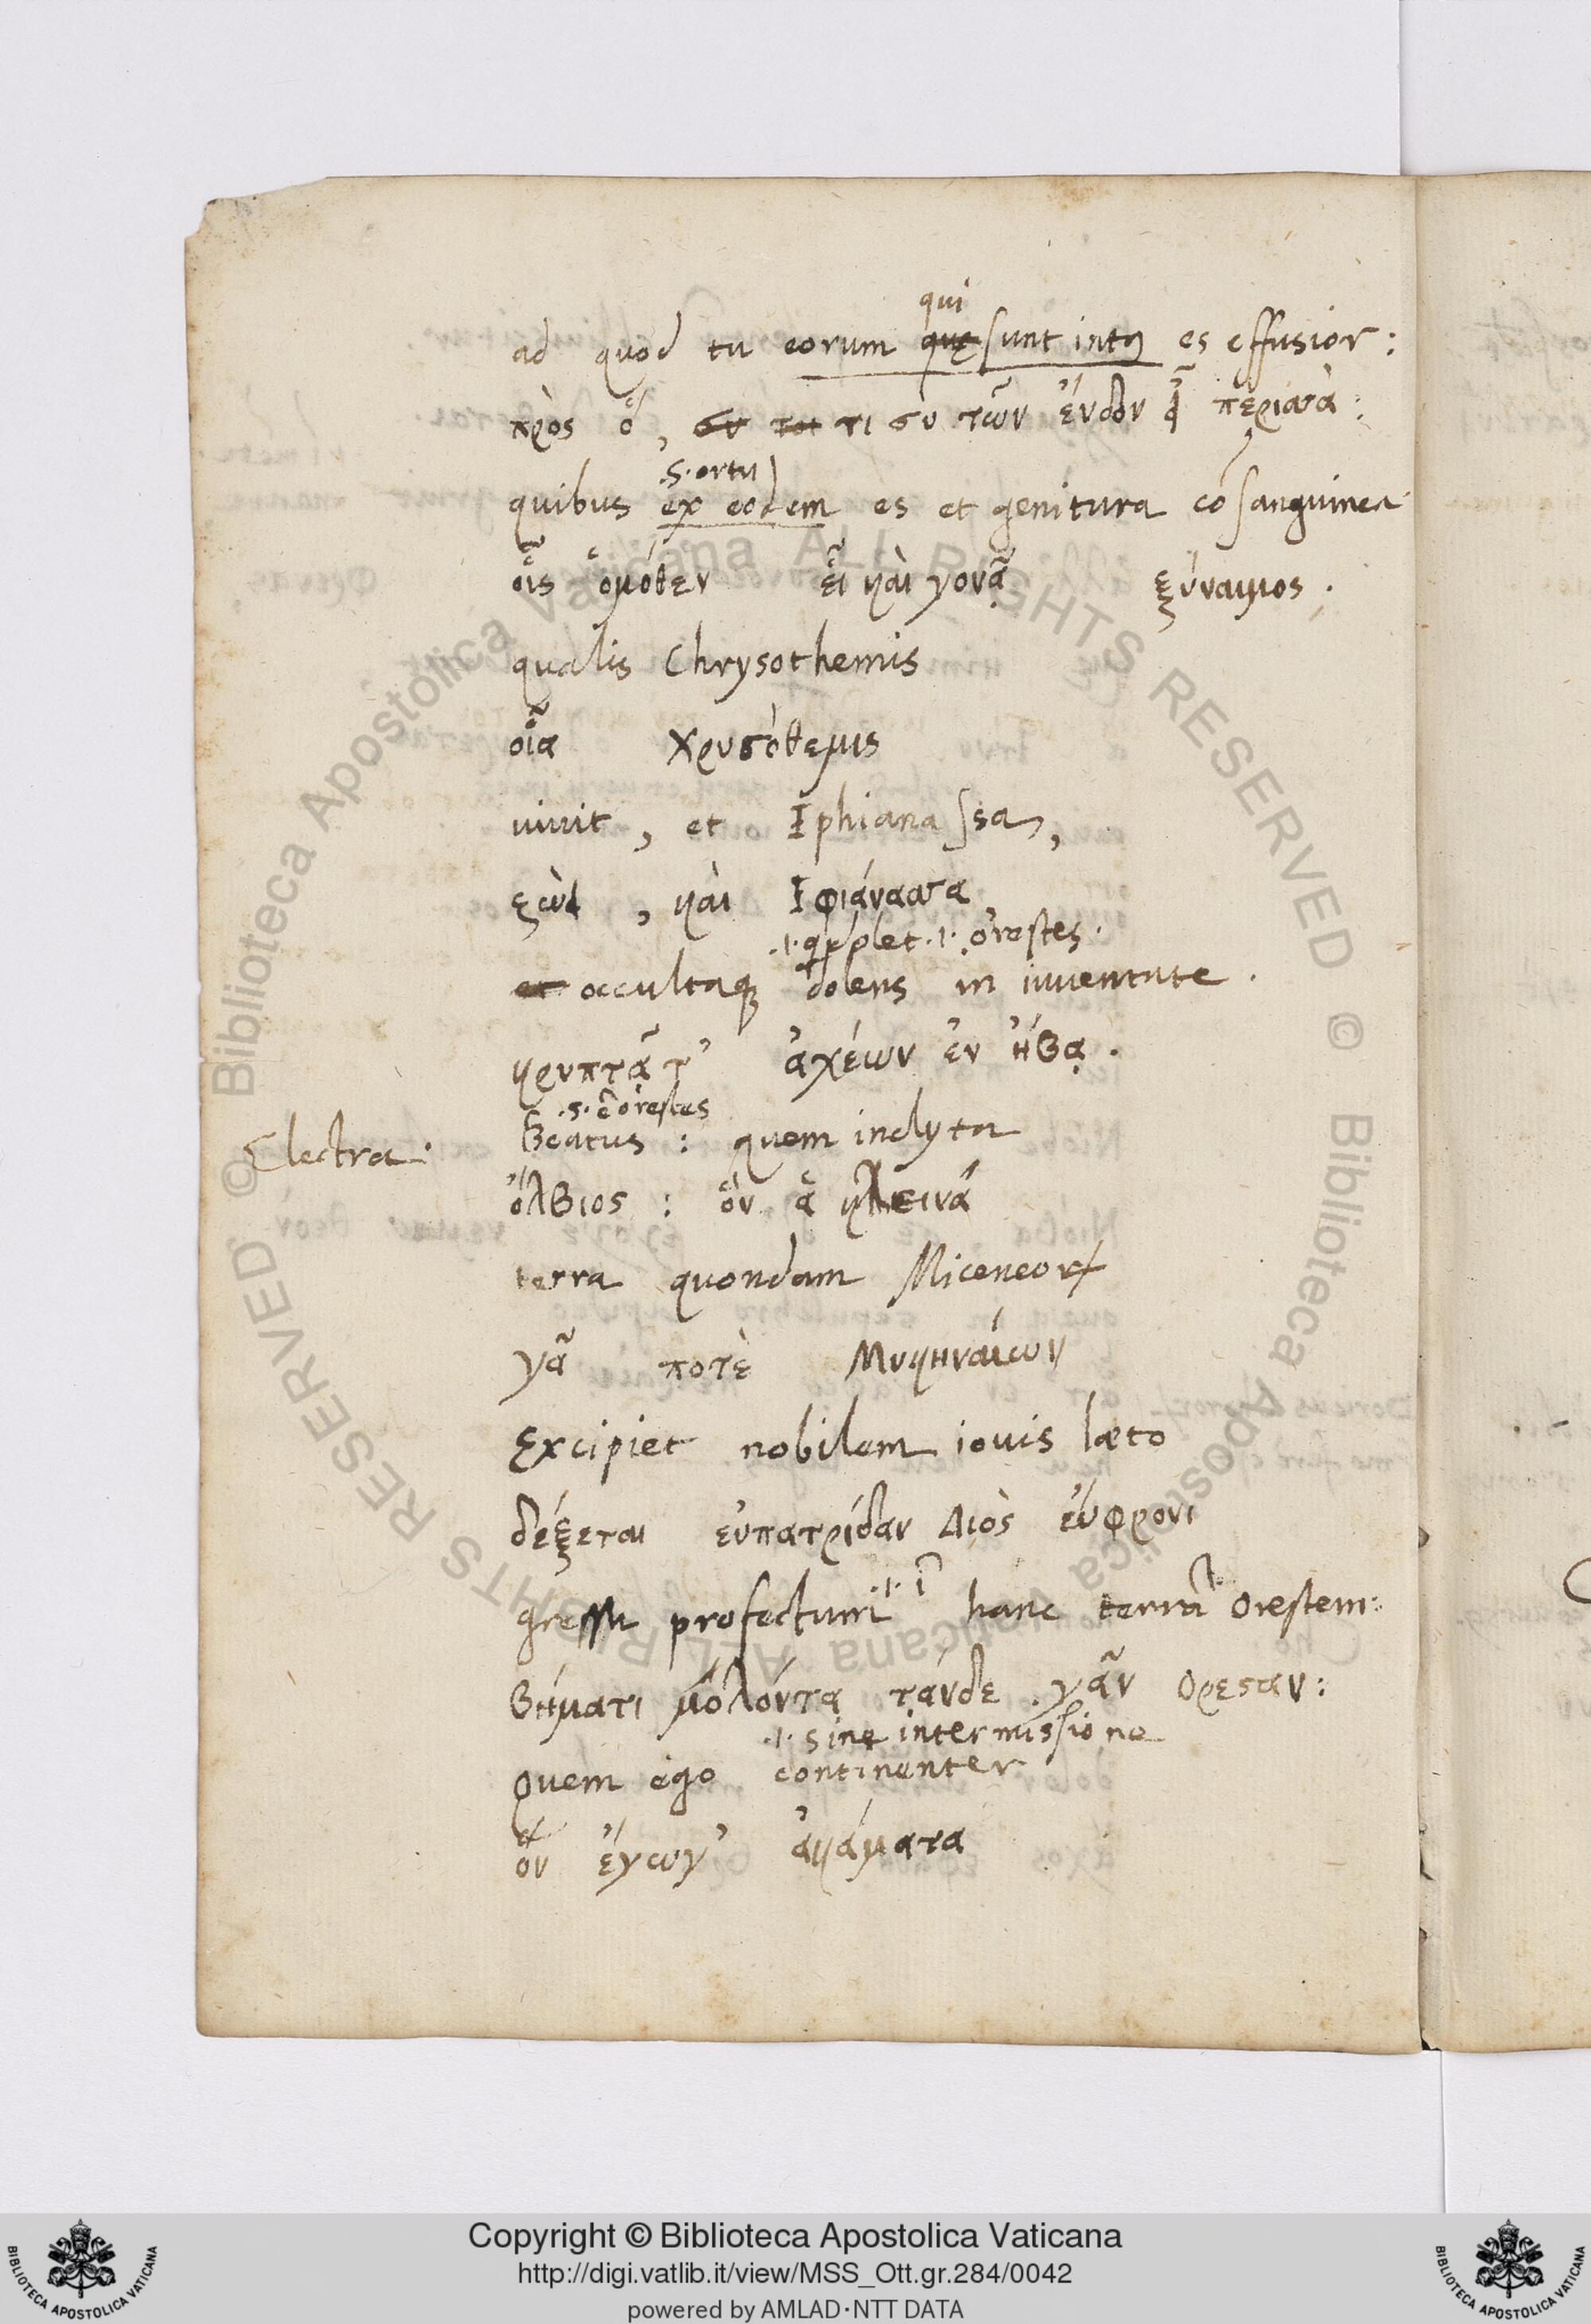 qui
ad quod tu eorum quę sunt intꝰ es effusior:
πρὸς ὅ, συ τοι τι σὺ τῶν ἔνδον εἶ περισσὰ:
.s. ortu
quibus ex eodem es et genitura cōsanguinea
οἷς ὁμόθεν εἶ καὶ γονᾷ ξύναιμος.
qualis Chrysothemis
οἵα Χρυσόθεμις
uiuit, et Iphianassa,
ζώει, καὶ Ιφιάνασσα
dolet .i. orestes.
et occultaq; dolens in iuuentute.
κρυπτᾷ τ’ ἀχέων ἐν ἥβᾳ.
.s. ē orestes
Electra. Beatus: quem inclyta
ὄλβιος: ὃν ἁ κλεινά
terra quondam Miceneoꝝ
γᾶ ποτὲ Μυκηναίων
Excipiet nobilem iouis læto
δέξεται εὐπατρίδαν Διὸς εὔφρονι
gressu profectum .i. ī hanc terrā Orestem:
βήματι μολόντα τάνδε γᾶν Ορεσταν:
.i. sine intermissione
Quem ego continenter
ὃν ἔγωγ’ ἀκάματα
Copyright © Biblioteca Apostolica Vaticana
http://digi.vatlib.it/view/MSS_Ott.gr.284/0042
powered by AMLAD·NTT DATA
BIBLIOTECA APOSTOLICA VATICANA
BIBLIOTECA APOSTOLICA VATICANA
© Biblioteca Apostolica Vaticana ALL RIGHTS RESERVED
© Biblioteca Apostolica Vaticana ALL RIGHTS RESERVED